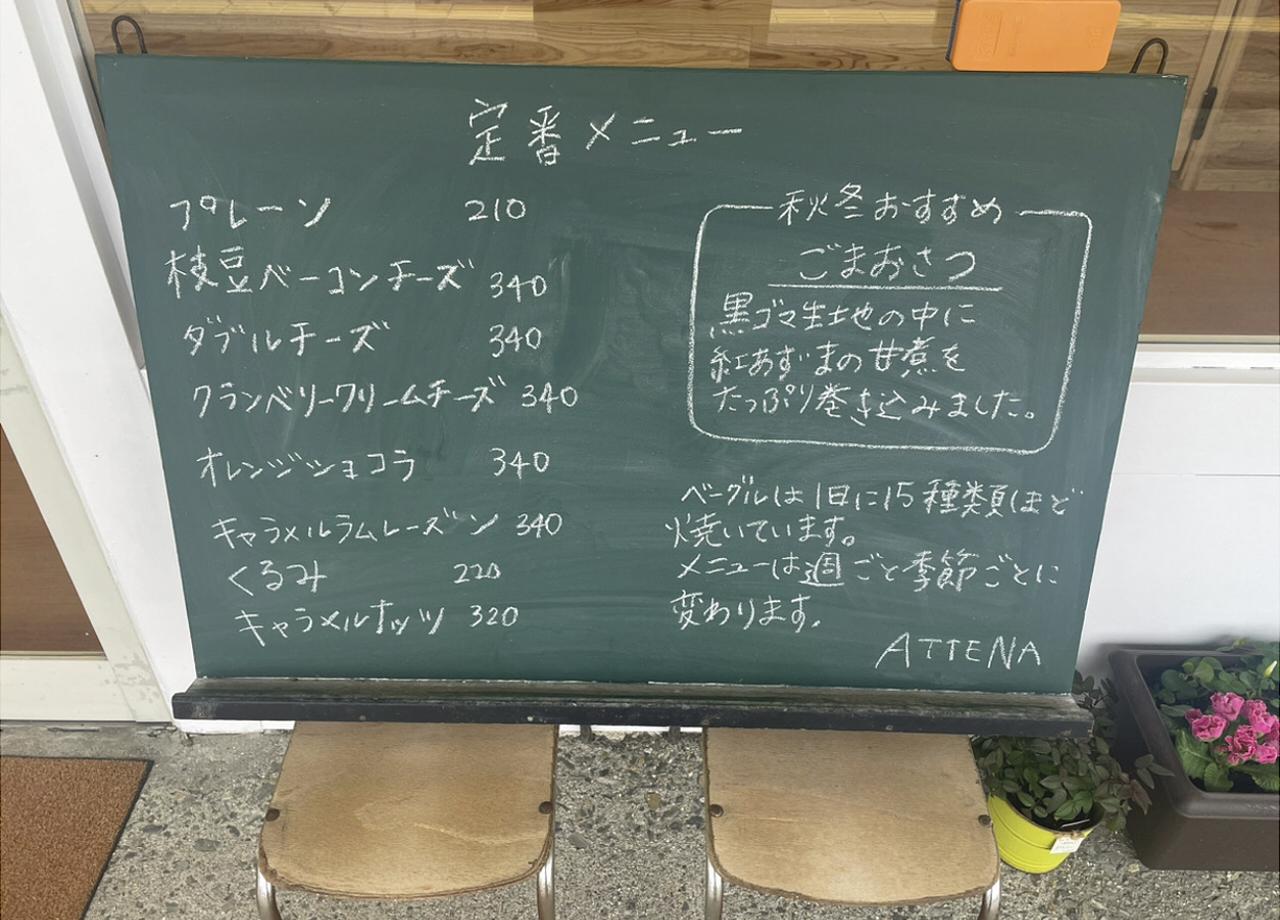 定番メニュー
プレーン 210
枝豆ベーコンチーズ 340
ダブルチーズ 340
クランベリークリームチーズ 340
オレンジショコラ 340
キャラメルラムレーズン 340
くるみ 220
キャラメルナッツ 320
秋冬おすすめ
ごまおさつ
黒ゴマ生地の中に
紅あずまの甘煮を
たっぷり巻き込みました。
ベーグルは1日に15種類ほど
焼いています。
メニューは週ごと季節ごとに
変わります。
ATTENA